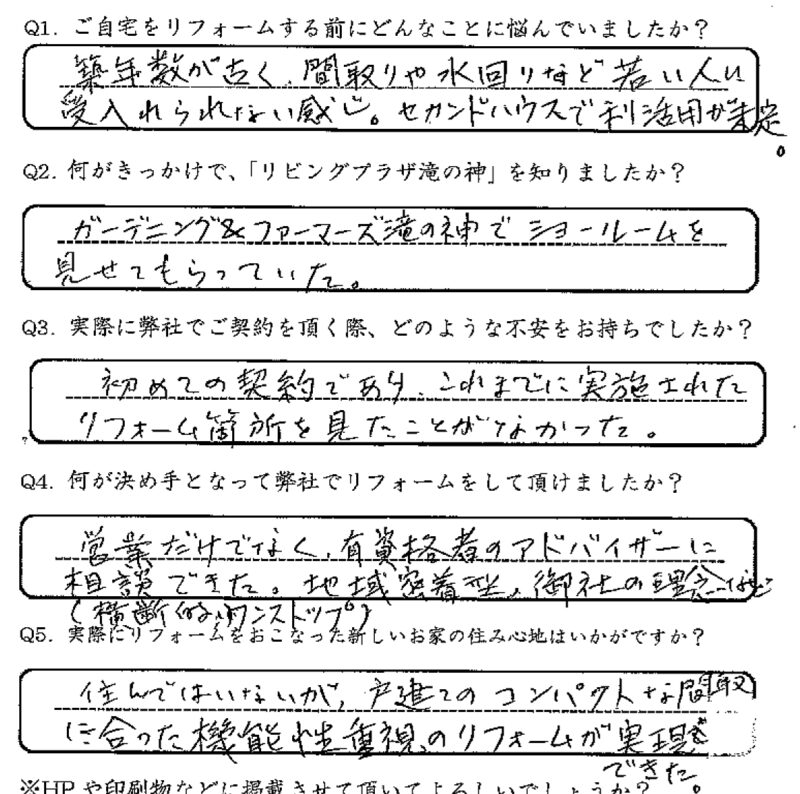 Q1. ご自宅をリフォームする前にどんなことに悩んでいましたか？
築年数が古く、間取りや水回りなど若い人に
受入れられない感じ。セカンドハウスで利活用が未定。
Q2. 何がきっかけで、「リビングプラザ滝の神」を知りましたか？
ガーデニング&ファーマーズ滝の神でショールームを
見せてもらっていた。
Q3. 実際に弊社でご契約を頂く際、どのような不安をお持ちでしたか？
初めての契約であり、これまでに実施された
リフォーム箇所を見たことがなかった。
Q4. 何が決め手となって弊社でリフォームをして頂けましたか？
営業だけでなく、有資格者のアドバイザーに
相談できた。地域密着型、御社の理念など
(横断的、ワンストップ)
Q5. 実際にリフォームをおこなった新しいお家の住み心地はいかがですか？
住んではいないが、戸建てのコンパクトな間取
に合った機能性重視のリフォームが実現
できた。
※HPや印刷物などに掲載させて頂いてよろしいでしょうか？